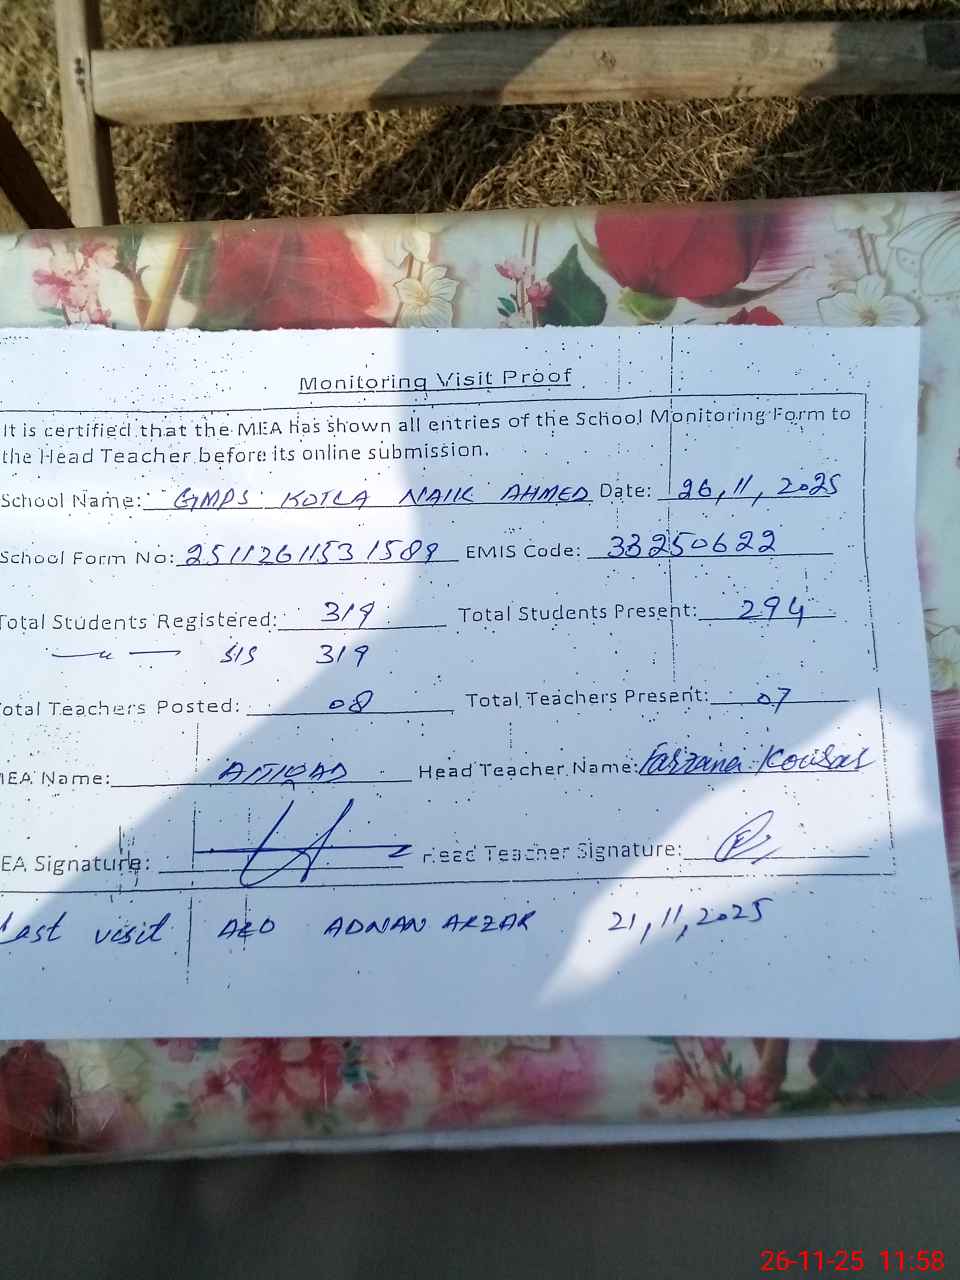 Monitoring Visit Proof
It is certified that the MEA has shown all entries of the School Monitoring Form to
the Head Teacher before its online submission.
School Name: GMPS KOTLA NAIK AHMED Date: 26,11,2025
School Form No: 2511261153 1589 EMIS Code: 33250622
Total Students Registered: 319 Total Students Present: 294
—"— SIS 319
Total Teachers Posted: 08 Total Teachers Present: 07
MEA Name: Head Teacher Name: Farzana Kousar
EA Signature: Head Teacher Signature:
Last visit AEO ADNAN 21,11,2025
26-11-25 11:58